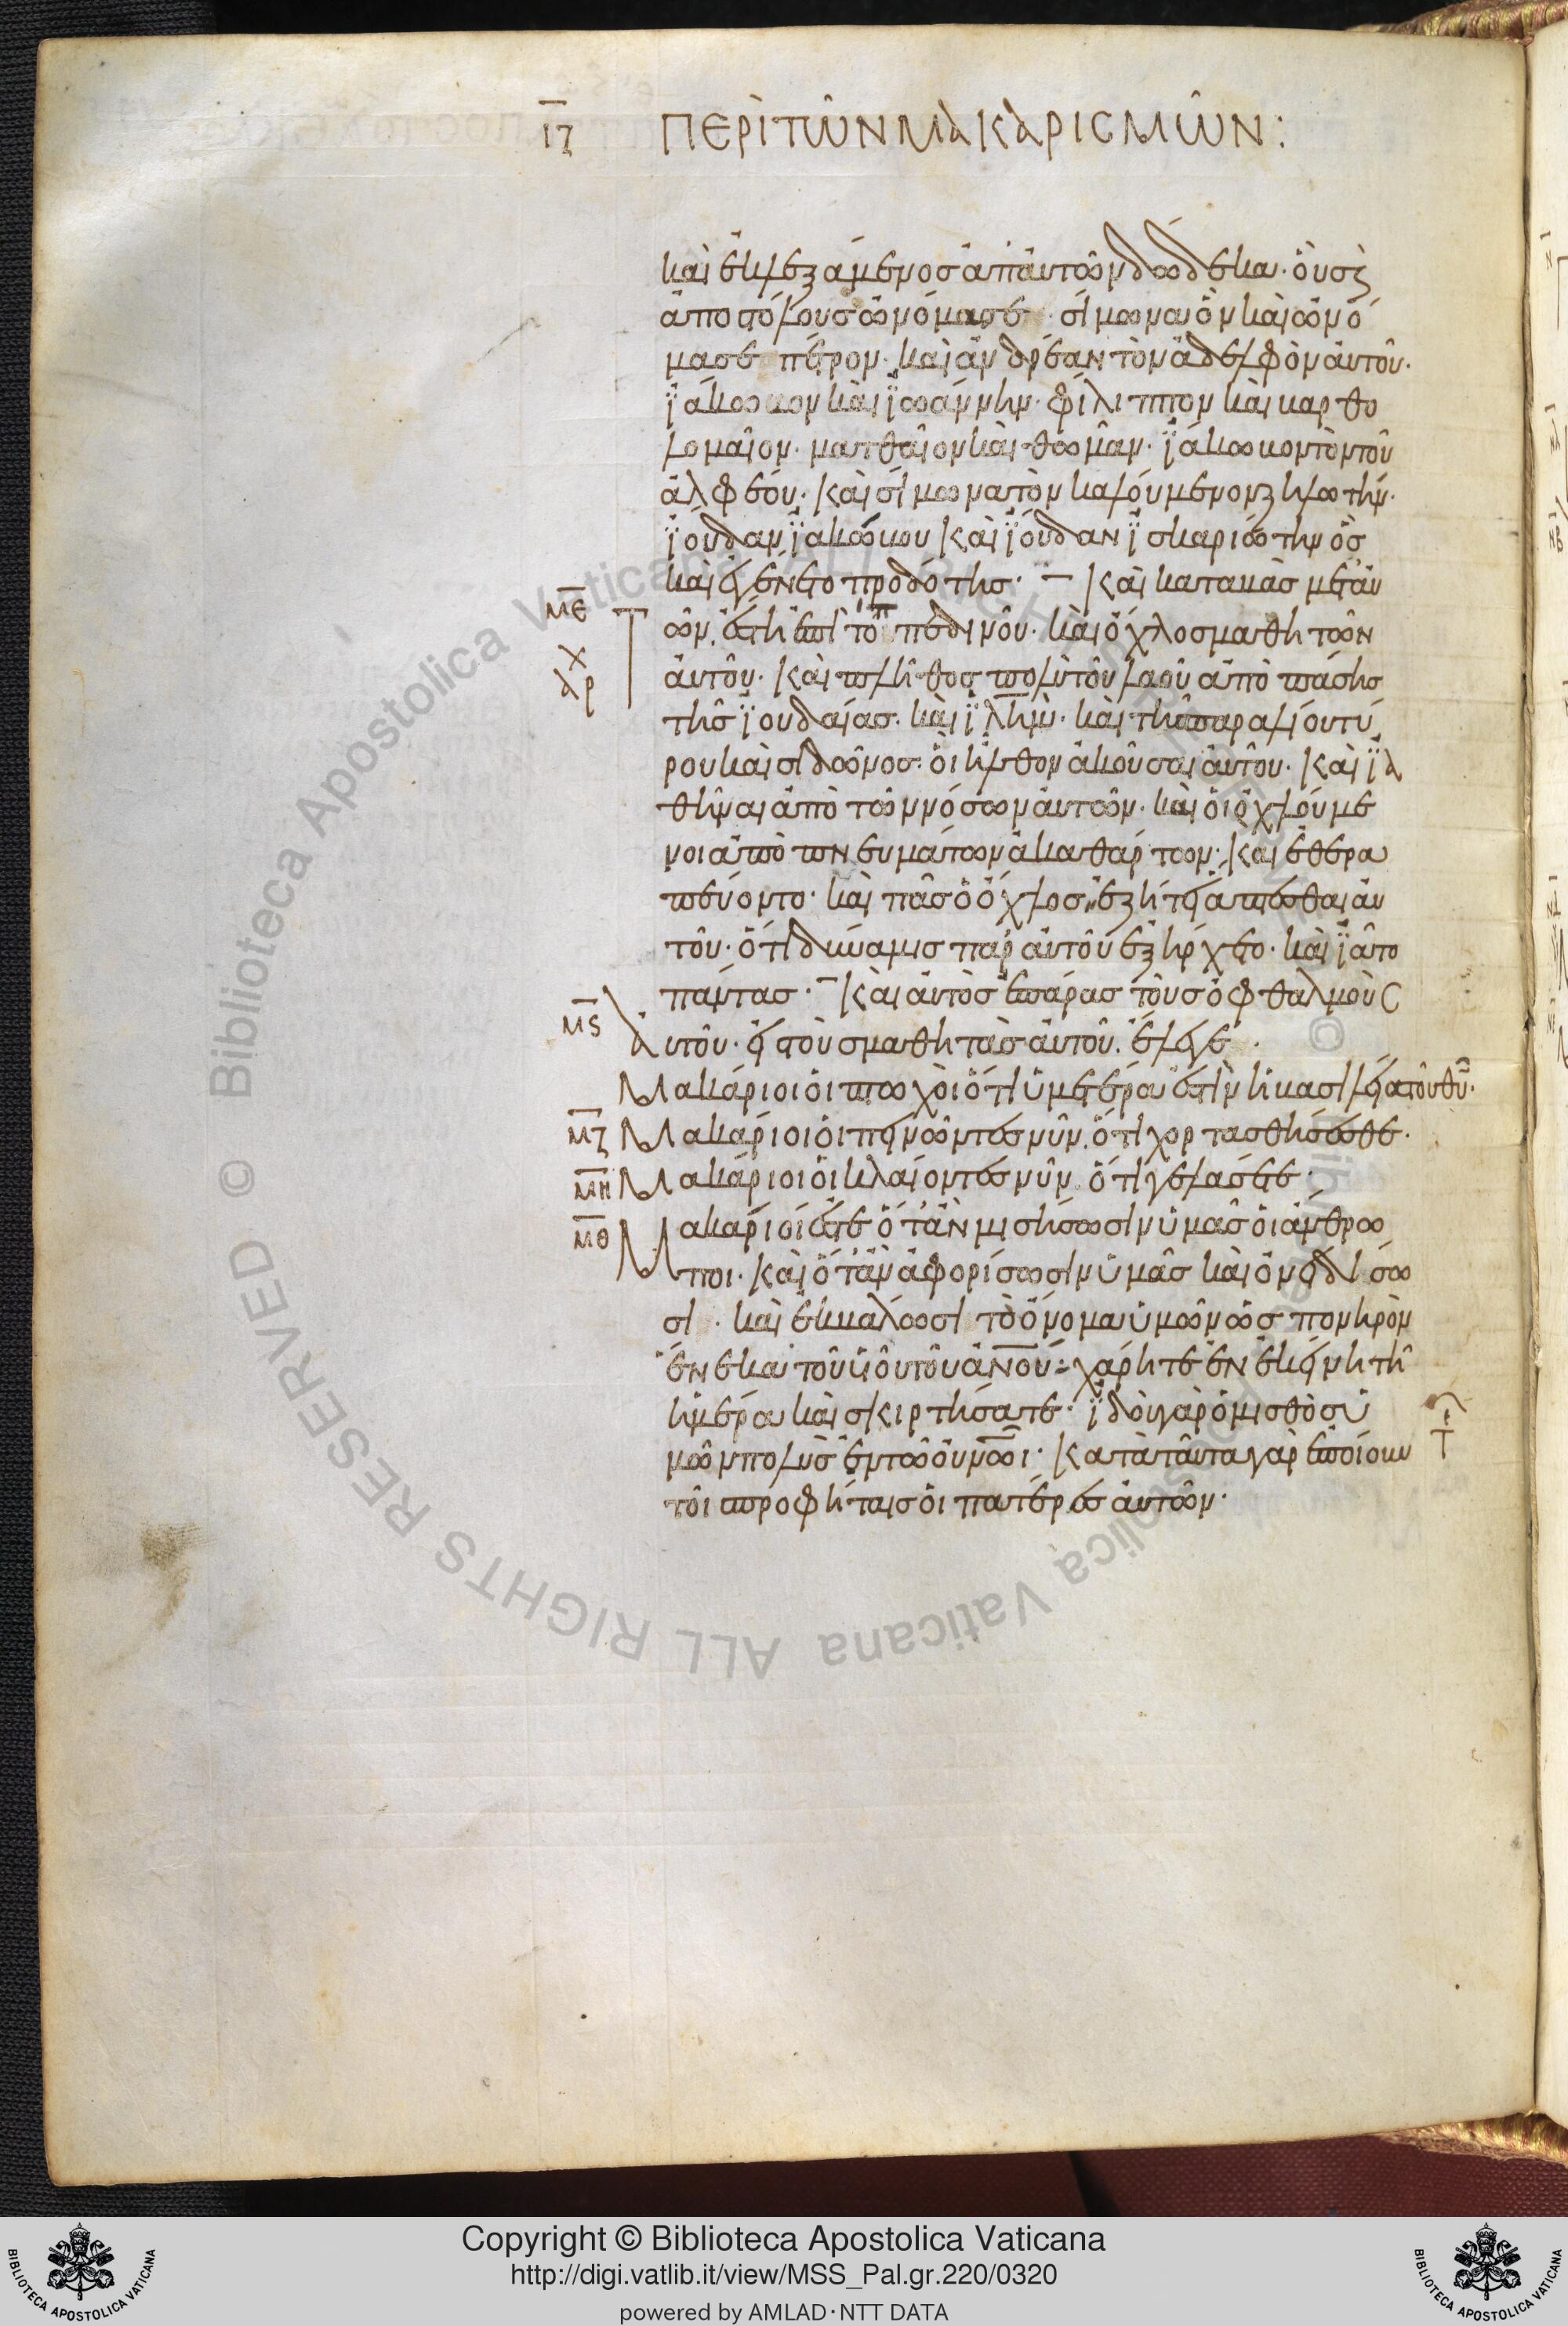 ΙΖ ΠΕΡῚ ΤΩ͂Ν ΜΑΚΑΡΙΣΜΩ͂Ν:
καὶ ἐκλεξάμενος ἀπ' αὐτῶν δώδεκα· οὓς κ(αὶ)
ἀποστόλους ὠνόμασε· σίμωνα ὃν καὶ ὠνό
μασε πέτρον· καὶ ἀνδρέαν τὸν ἀδελφὸν αὐτοῦ·
ϊάκωβον καὶ ϊωάννην· φίλιππον καὶ βαρθο
λομαῖον· ματθαῖον καὶ θωμᾶν· ϊάκωβον τὸν τοῦ
ἀλφέου· καὶ σίμωνα τὸν καλούμενον ζηλωτήν·
ϊούδαν ϊακώβου καὶ ϊούδαν ϊσκαριώτην ὃς
καὶ ἐγένετο προδότης· καὶ καταβὰς μετ' αὐ
ΜΕ τῶν ἔστη ἐπὶ τόπ πεδινοῦ· καὶ ὄχλος μαθητῶν
ΑΡΧ αὐτοῦ· καὶ πλῆθος πολὺ τοῦ λαοῦ ἀπὸ πάσης
τῆς ϊουδαίας· καὶ ϊλημ· καὶ τῆς παραλίου τύ
ρου καὶ σιδῶνος· οἳ ἦλθον ἀκοῦσαι αὐτοῦ· καὶ ϊα
θῆναι ἀπὸ τῶν νόσων αὐτῶν· καὶ οἱ ὀχλούμε
νοι ἀπὸ πνευμάτων ἀκαθάρτων· καὶ ἐθερα
πεύοντο· καὶ πᾶς ὁ ὄχλος ἐζήτει ἅπτεσθαι αὐ
τοῦ· ὅτι δύναμις παρ' αὐτοῦ ἐξήρχετο· καὶ ϊᾶτο
πάντας· καὶ αὐτὸς ἐπάρας τοὺς ὀφθαλμοὺς
ΜϚ αὐτοῦ· εἰς τοὺς μαθητὰς αὐτοῦ· ἔλεγε·
Μακάριοι οἱ πτωχοὶ ὅτι ὑμετέρα ἐστὶν ἡ βασιλεία τοῦ θυ·
ΜΖ Μακάριοι οἱ πεινῶντες νῦν· ὅτι χορτασθήσεσθε·
ΜΗ Μακάριοι οἱ κλαίοντες νῦν ὅτι γελάσετε·
ΜΘ Μακάριοί ἐστε ὅταν μισήσωσιν ὑμᾶς οἱ ἄνθρω
ποι· καὶ ὅταν ἀφορίσωσιν ὑμᾶς καὶ ὀνειδίσω
σι· καὶ ἐκβάλωσι τὸ ὄνομα ὑμῶν ὡς πονηρὸν
ἕνεκα τοῦ υἱοῦ τοῦ ανου· χάρητε ἐν ἐκείνη τῆ
ἡμέρα καὶ σκιρτήσατε· ϊδοὺ γὰρ ὁ μισθὸς ὑ
μῶν πολὺς ἐν τῶ οὐνωι· κατὰ ταῦτα γὰρ ἐποίουν
τοῖς προφήταις οἱ πατέρες αὐτῶν·
Copyright © Biblioteca Apostolica Vaticana
http://digi.vatlib.it/view/MSS_Pal.gr.220/0320
powered by AMLAD·NTT DATA
BIBLIOTECA APOSTOLICA VATICANA
BIBLIOTECA APOSTOLICA VATICANA
© Biblioteca Apostolica Vaticana ALL RIGHTS RESERVED